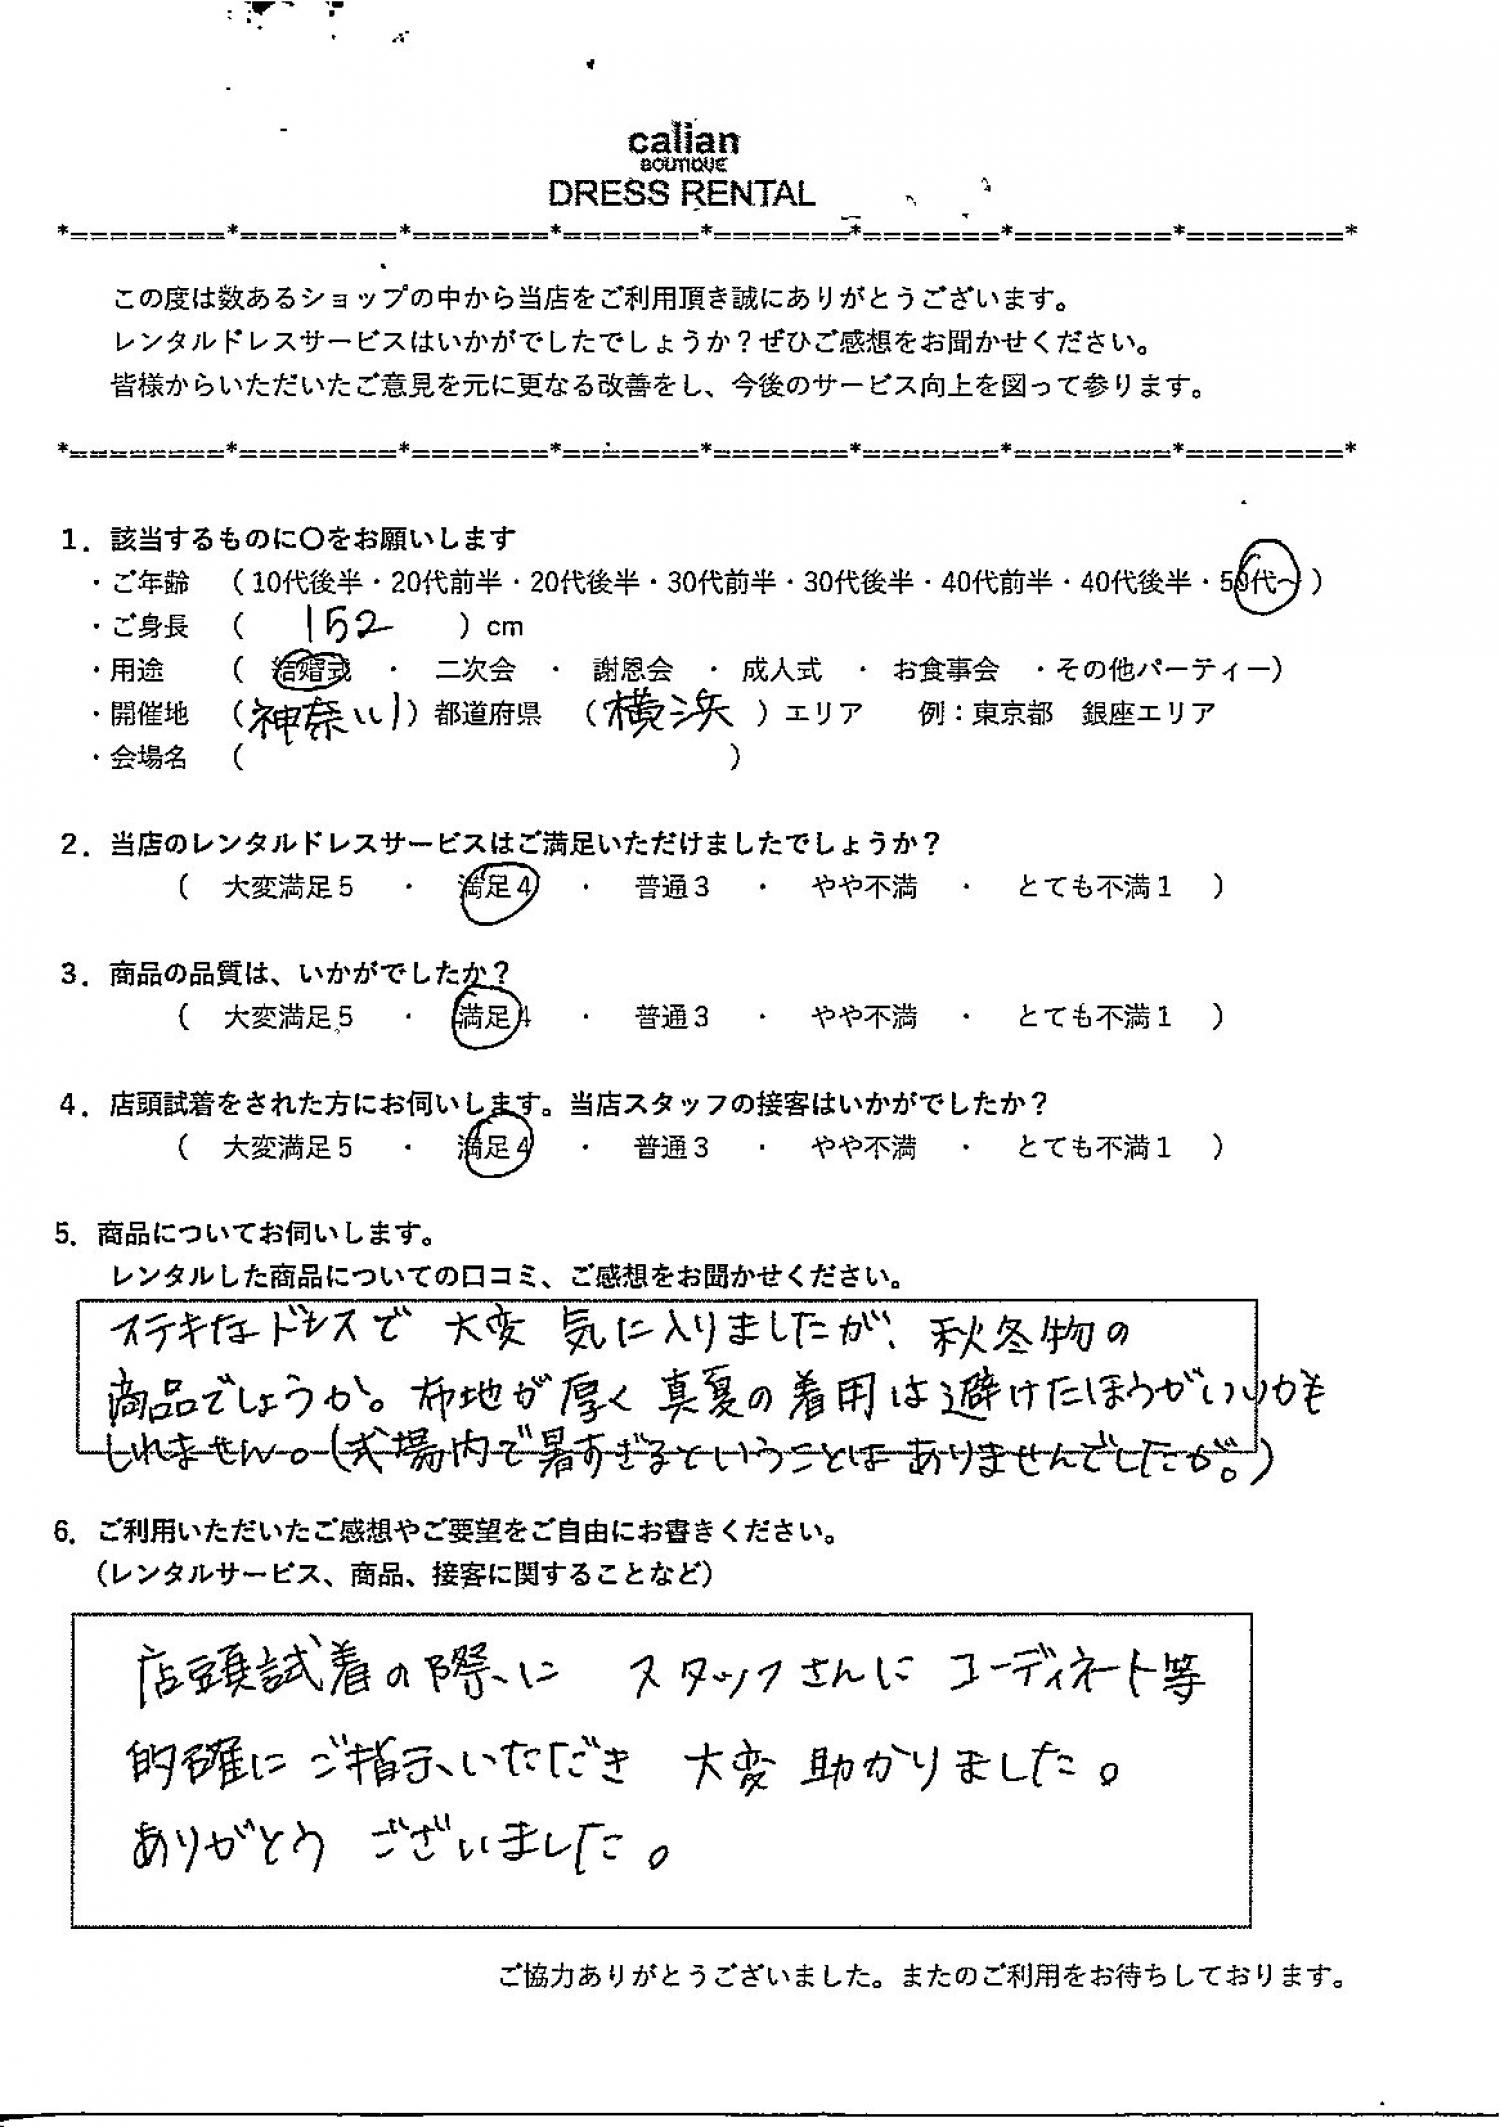 calian
BOUTIQUE
DRESS RENTAL
*========*========*=======*=======*=======*=======*========*========*
この度は数あるショップの中から当店をご利用頂き誠にありがとうございます。
レンタルドレスサービスはいかがでしたでしょうか？ぜひご感想をお聞かせください。
皆様からいただいたご意見を元に更なる改善をし、今後のサービス向上を図って参ります。
*========*========*=======*=======*=======*=======*========*========*
1．該当するものに〇をお願いします
・ご年齢 （10代後半・20代前半・20代後半・30代前半・30代後半・40代前半・40代後半・50代～）
・ご身長 （ 152 ）cm
・用途 （ 結婚式 ・ 二次会 ・ 謝恩会 ・ 成人式 ・ お食事会 ・その他パーティー）
・開催地 （神奈川）都道府県 （横浜）エリア 例：東京都 銀座エリア
・会場名 （ ）
2．当店のレンタルドレスサービスはご満足いただけましたでしょうか？
（ 大変満足5 ・ 満足4 ・ 普通3 ・ やや不満 ・ とても不満1 ）
3．商品の品質は、いかがでしたか？
（ 大変満足5 ・ 満足4 ・ 普通3 ・ やや不満 ・ とても不満1 ）
4．店頭試着をされた方にお伺いします。当店スタッフの接客はいかがでしたか？
（ 大変満足5 ・ 満足4 ・ 普通3 ・ やや不満 ・ とても不満1 ）
5．商品についてお伺いします。
レンタルした商品についての口コミ、ご感想をお聞かせください。
ステキなドレスで 大変 気に入りましたが、秋冬物の
商品でしょうか。布地が厚く 真夏の着用は避けたほうがいいかも
しれません。（式場内で暑すぎるということはありませんでしたが。）
6．ご利用いただいたご感想やご要望をご自由にお書きください。
（レンタルサービス、商品、接客に関することなど）
店頭試着の際に スタッフさんに コーディネート等
的確に ご指示いただき 大変 助かりました。
ありがとう ございました。
ご協力ありがとうございました。またのご利用をお待ちしております。